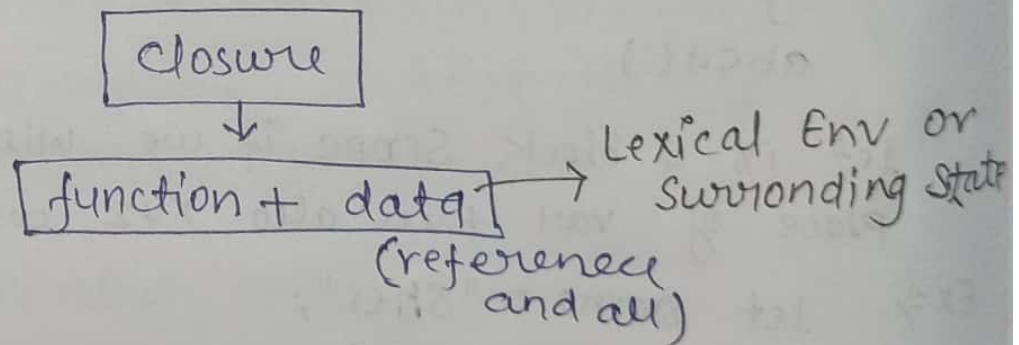 Closure
function + data → Lexical Env or
Surronding State
(reference
and all)